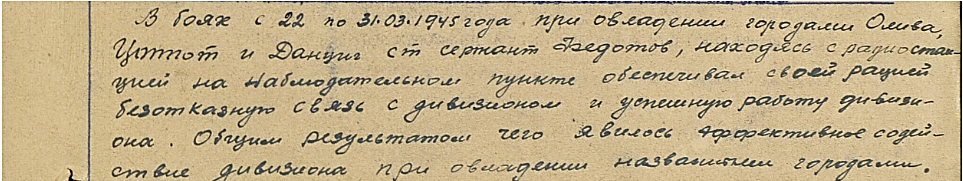 В боях с 22 по 31.03.1945 года при овладении городами Олива,
Цоппот и Данциг ст сержант Федотов, находясь с радиостан-
цией на наблюдательном пункте обеспечивал своей рацией
безотказную связь с дивизионом и успешную работу дивизи-
она. Общим результатом чего явилось эффективное содей-
ствие дивизиона при овладении названными городами.